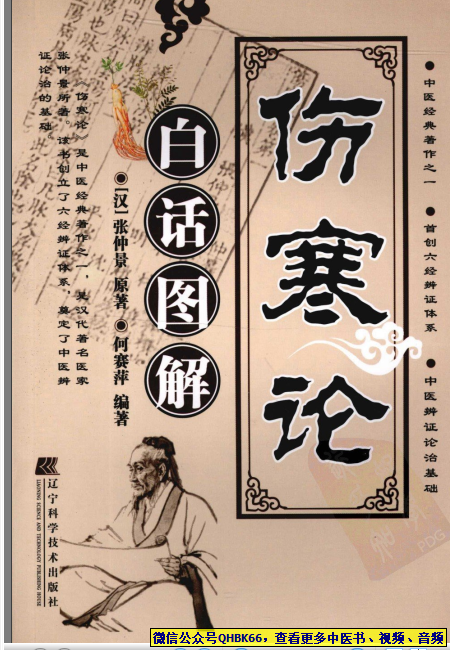 ●中医经典著作之一 ●首创六经辨证体系 ●中医辨证论治基础
伤寒论
白话图解
●[汉]张仲景 原著●何赛萍 编著
《伤寒论》是中医经典著作之一，是汉代著名医家
张仲景所著。该书创立了六经辨证体系，奠定了中医辨
证论治的基础。
辽宁科学技术出版社
LIAONING SCIENCE AND TECHNOLOGY PUBLISHING HOUSE
PDG
微信公众号QHBK66，查看更多中医书、视频、音频